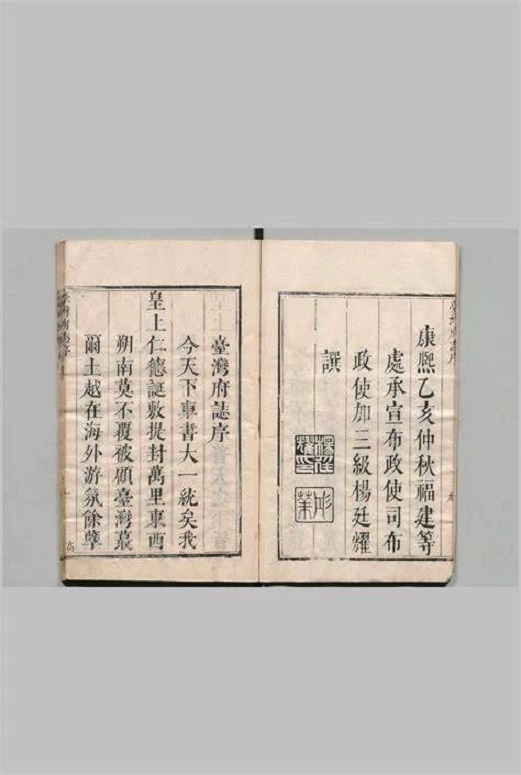 康熙乙亥仲秋福建等
處承宣布政使司布
政使加三級楊廷耀
譔
臺灣府誌序
今天下車書大一統矣我
皇上仁德誕敷提封萬里東西
朔南莫不覆被顧臺灣蕞
爾土越在海外游氛餘孽